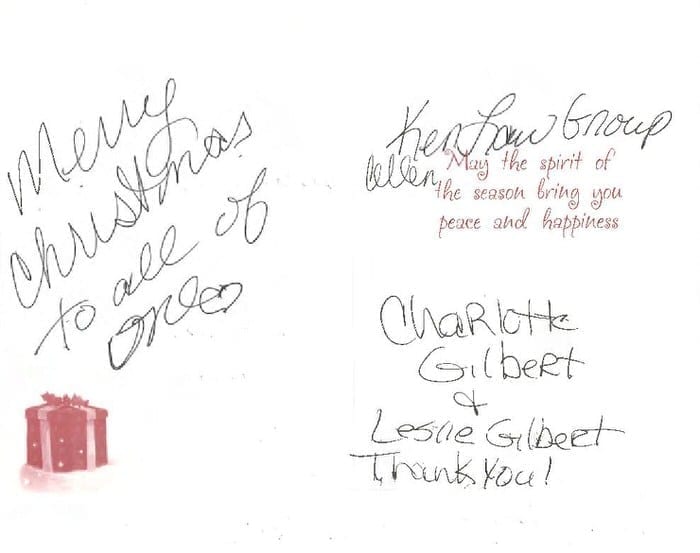 Merry
Christmas
to all of
Ken Law Group
May the spirit of
the season bring you
peace and happiness
Charlotte
Gilbert
&
Leslie Gilbert
Thanks You!